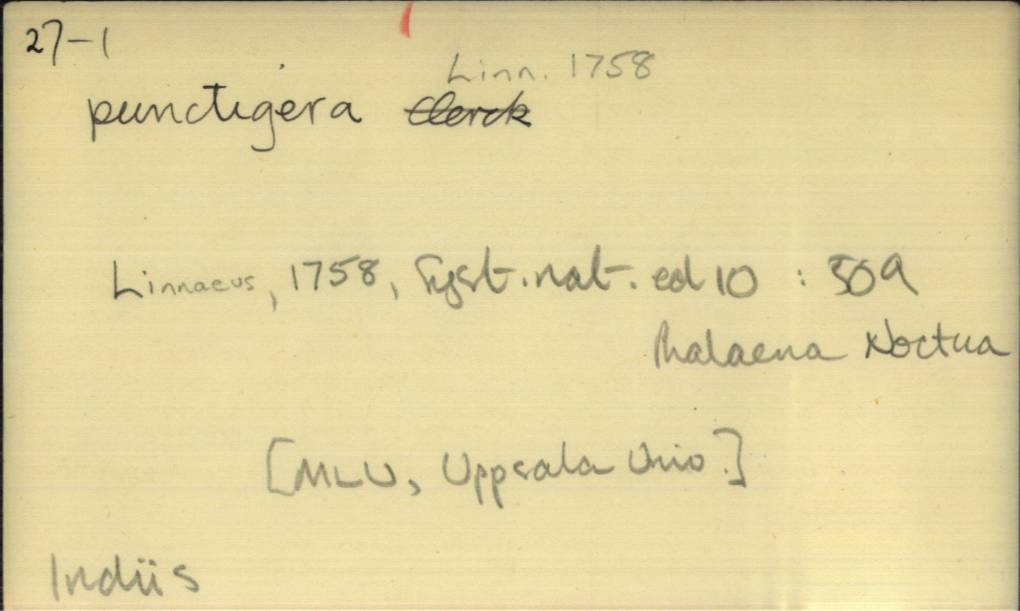 27-1
Linn. 1758
punctigera Clerck
Linnaeus, 1758, Syst. nat. ed 10 : 509
Phalaena Noctua
[MLU, Uppsala Univ.]
Indiis